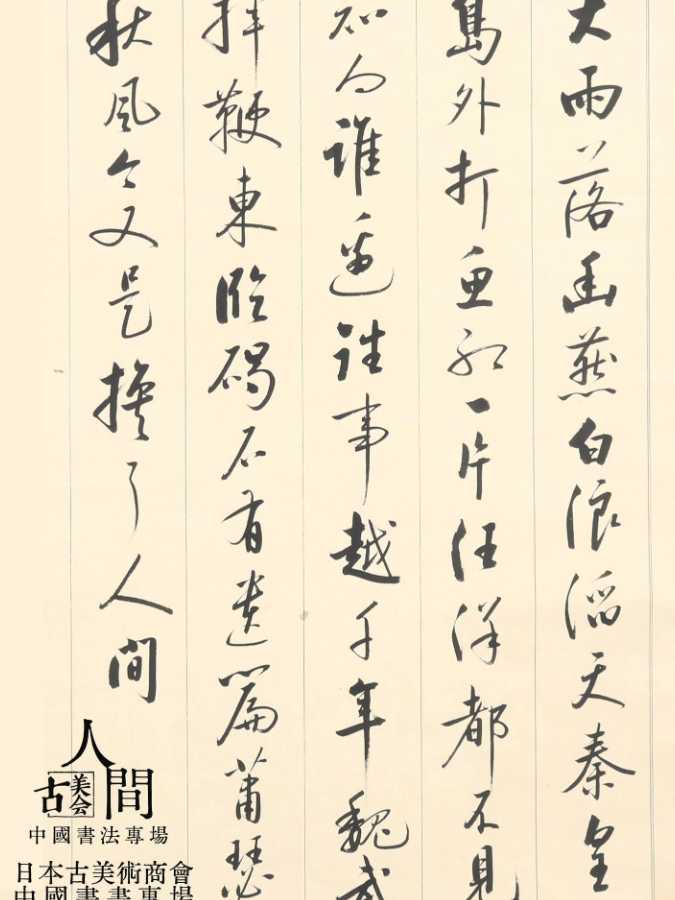 大雨落幽燕白浪滔天秦皇
島外打魚船一片汪洋都不見
知向誰邊往事越千年魏武
揮鞭東臨碣石有遺篇蕭瑟
秋風今又是換了人間
人間
古美会
中國書法專場
日本古美術商會
中國書畫專場